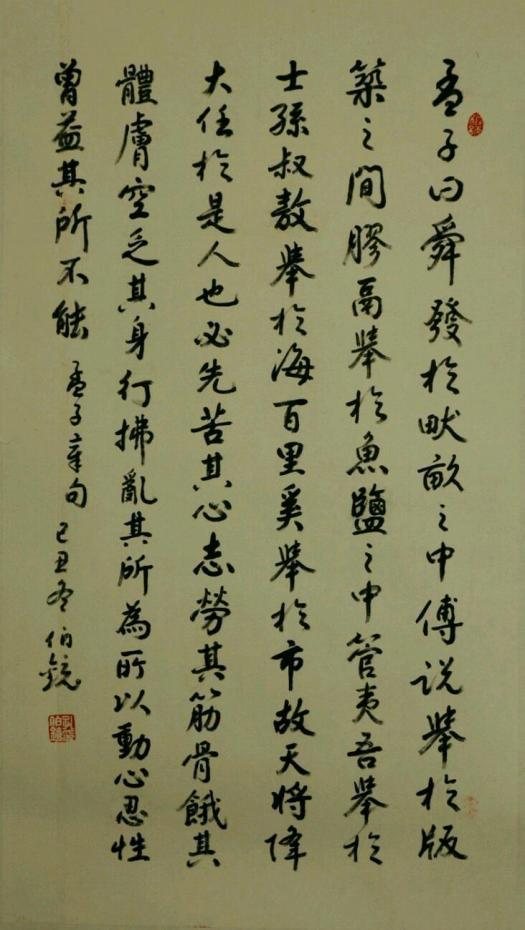 孟子曰舜發於畎畝之中傅说舉於版
築之間膠鬲舉於魚鹽之中管夷吾舉於
士孫叔敖舉於海百里奚舉於市故天將降
大任於是人也必先苦其心志勞其筋骨餓其
體膚空乏其身行拂亂其所為所以動心忍性
曾益其所不能 孟子章句 己丑冬伯鏡